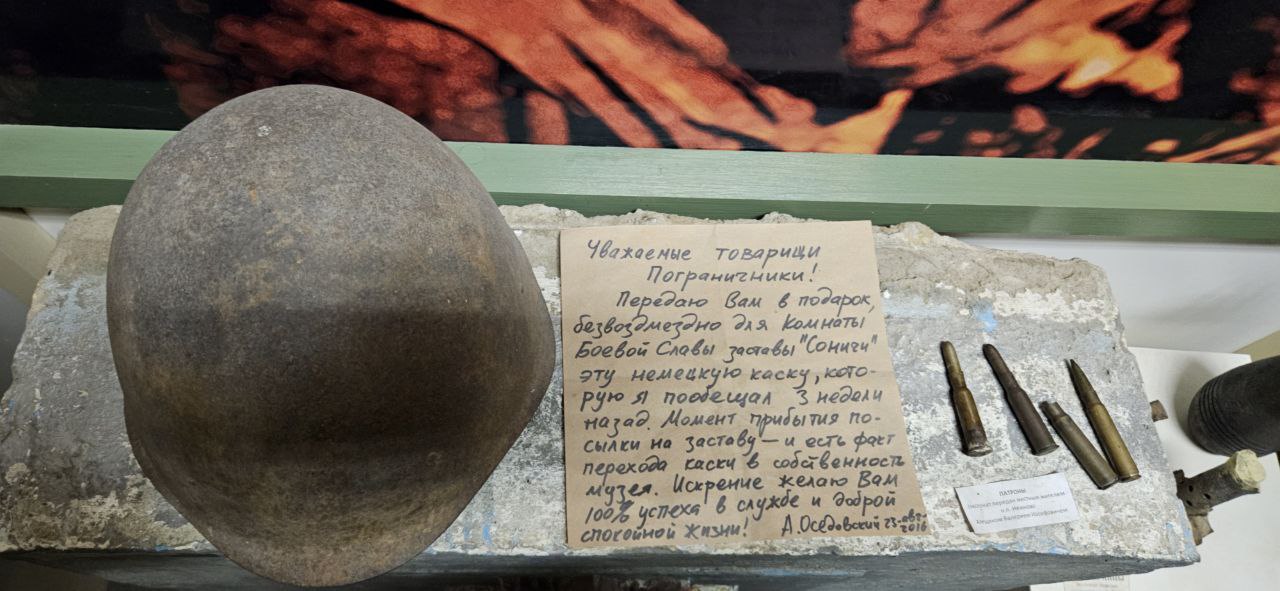 Уважаемые товарищи
Пограничники!
Передаю Вам в подарок,
безвоздмездно для Комнаты
Боевой Славы заставы "Соничи"
эту немецкую каску, кото-
рую я пообещал 3 недели
назад. Момент прибытия по-
сылки на заставу — и есть факт
перехода каски в собственность
музея. Искренне желаю Вам
100% успеха в службе и доброй
спокойной жизни! А.Оседовский 23-авг-
2016
ПАТРОНЫ
передан местным жителем
н.п.
Валерием Иосифовичем